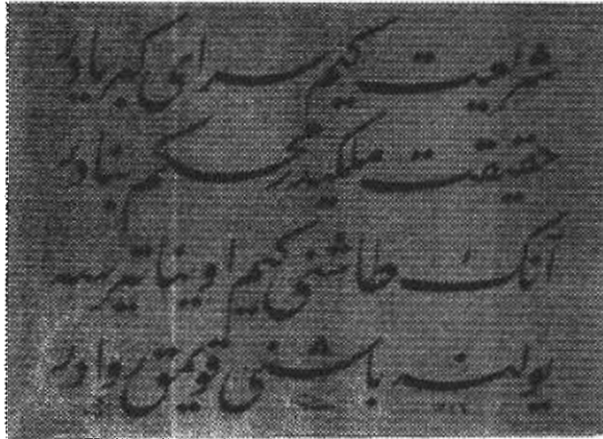 شریعت کیم سرای کبریادر
حقیقت ملکیدر محکم بنادر
آنک طاشنی کیم اویناتیرسه
یولنه باشنی قویمق روادر